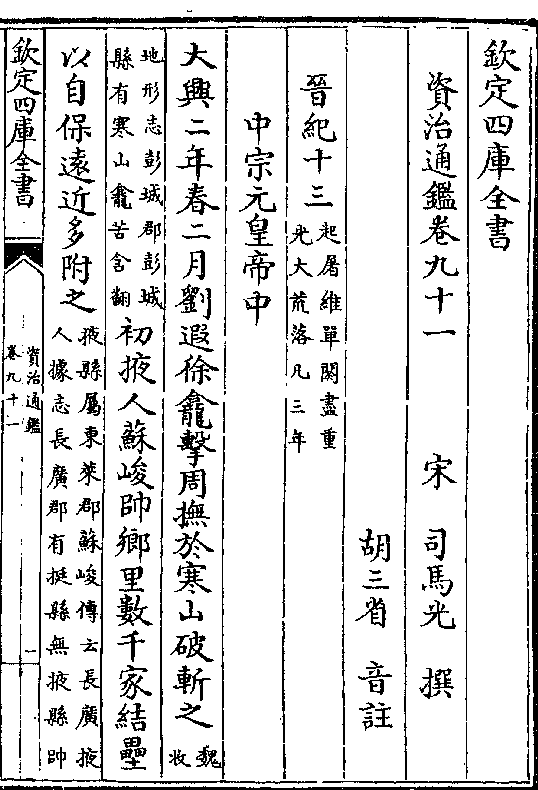 欽定四庫全書
資治通鑑卷九十一
宋 司馬光 撰
胡三省 音註
晉紀十三起屠維單閼盡重
光大荒落凡三年
中宗元皇帝中
大興二年春二月劉遐徐龕擊周撫於寒山破斬之魏
收
地形志彭城郡彭城
縣有寒山龕苦含翻
初掖人蘇峻帥鄉里數千家結壘
以自保遠近多附之掖縣屬東萊郡蘇峻傳云長廣掖
人據志長廣郡有挺縣無掖縣帥
欽定四庫全書
資治通鑑
卷九十一
一